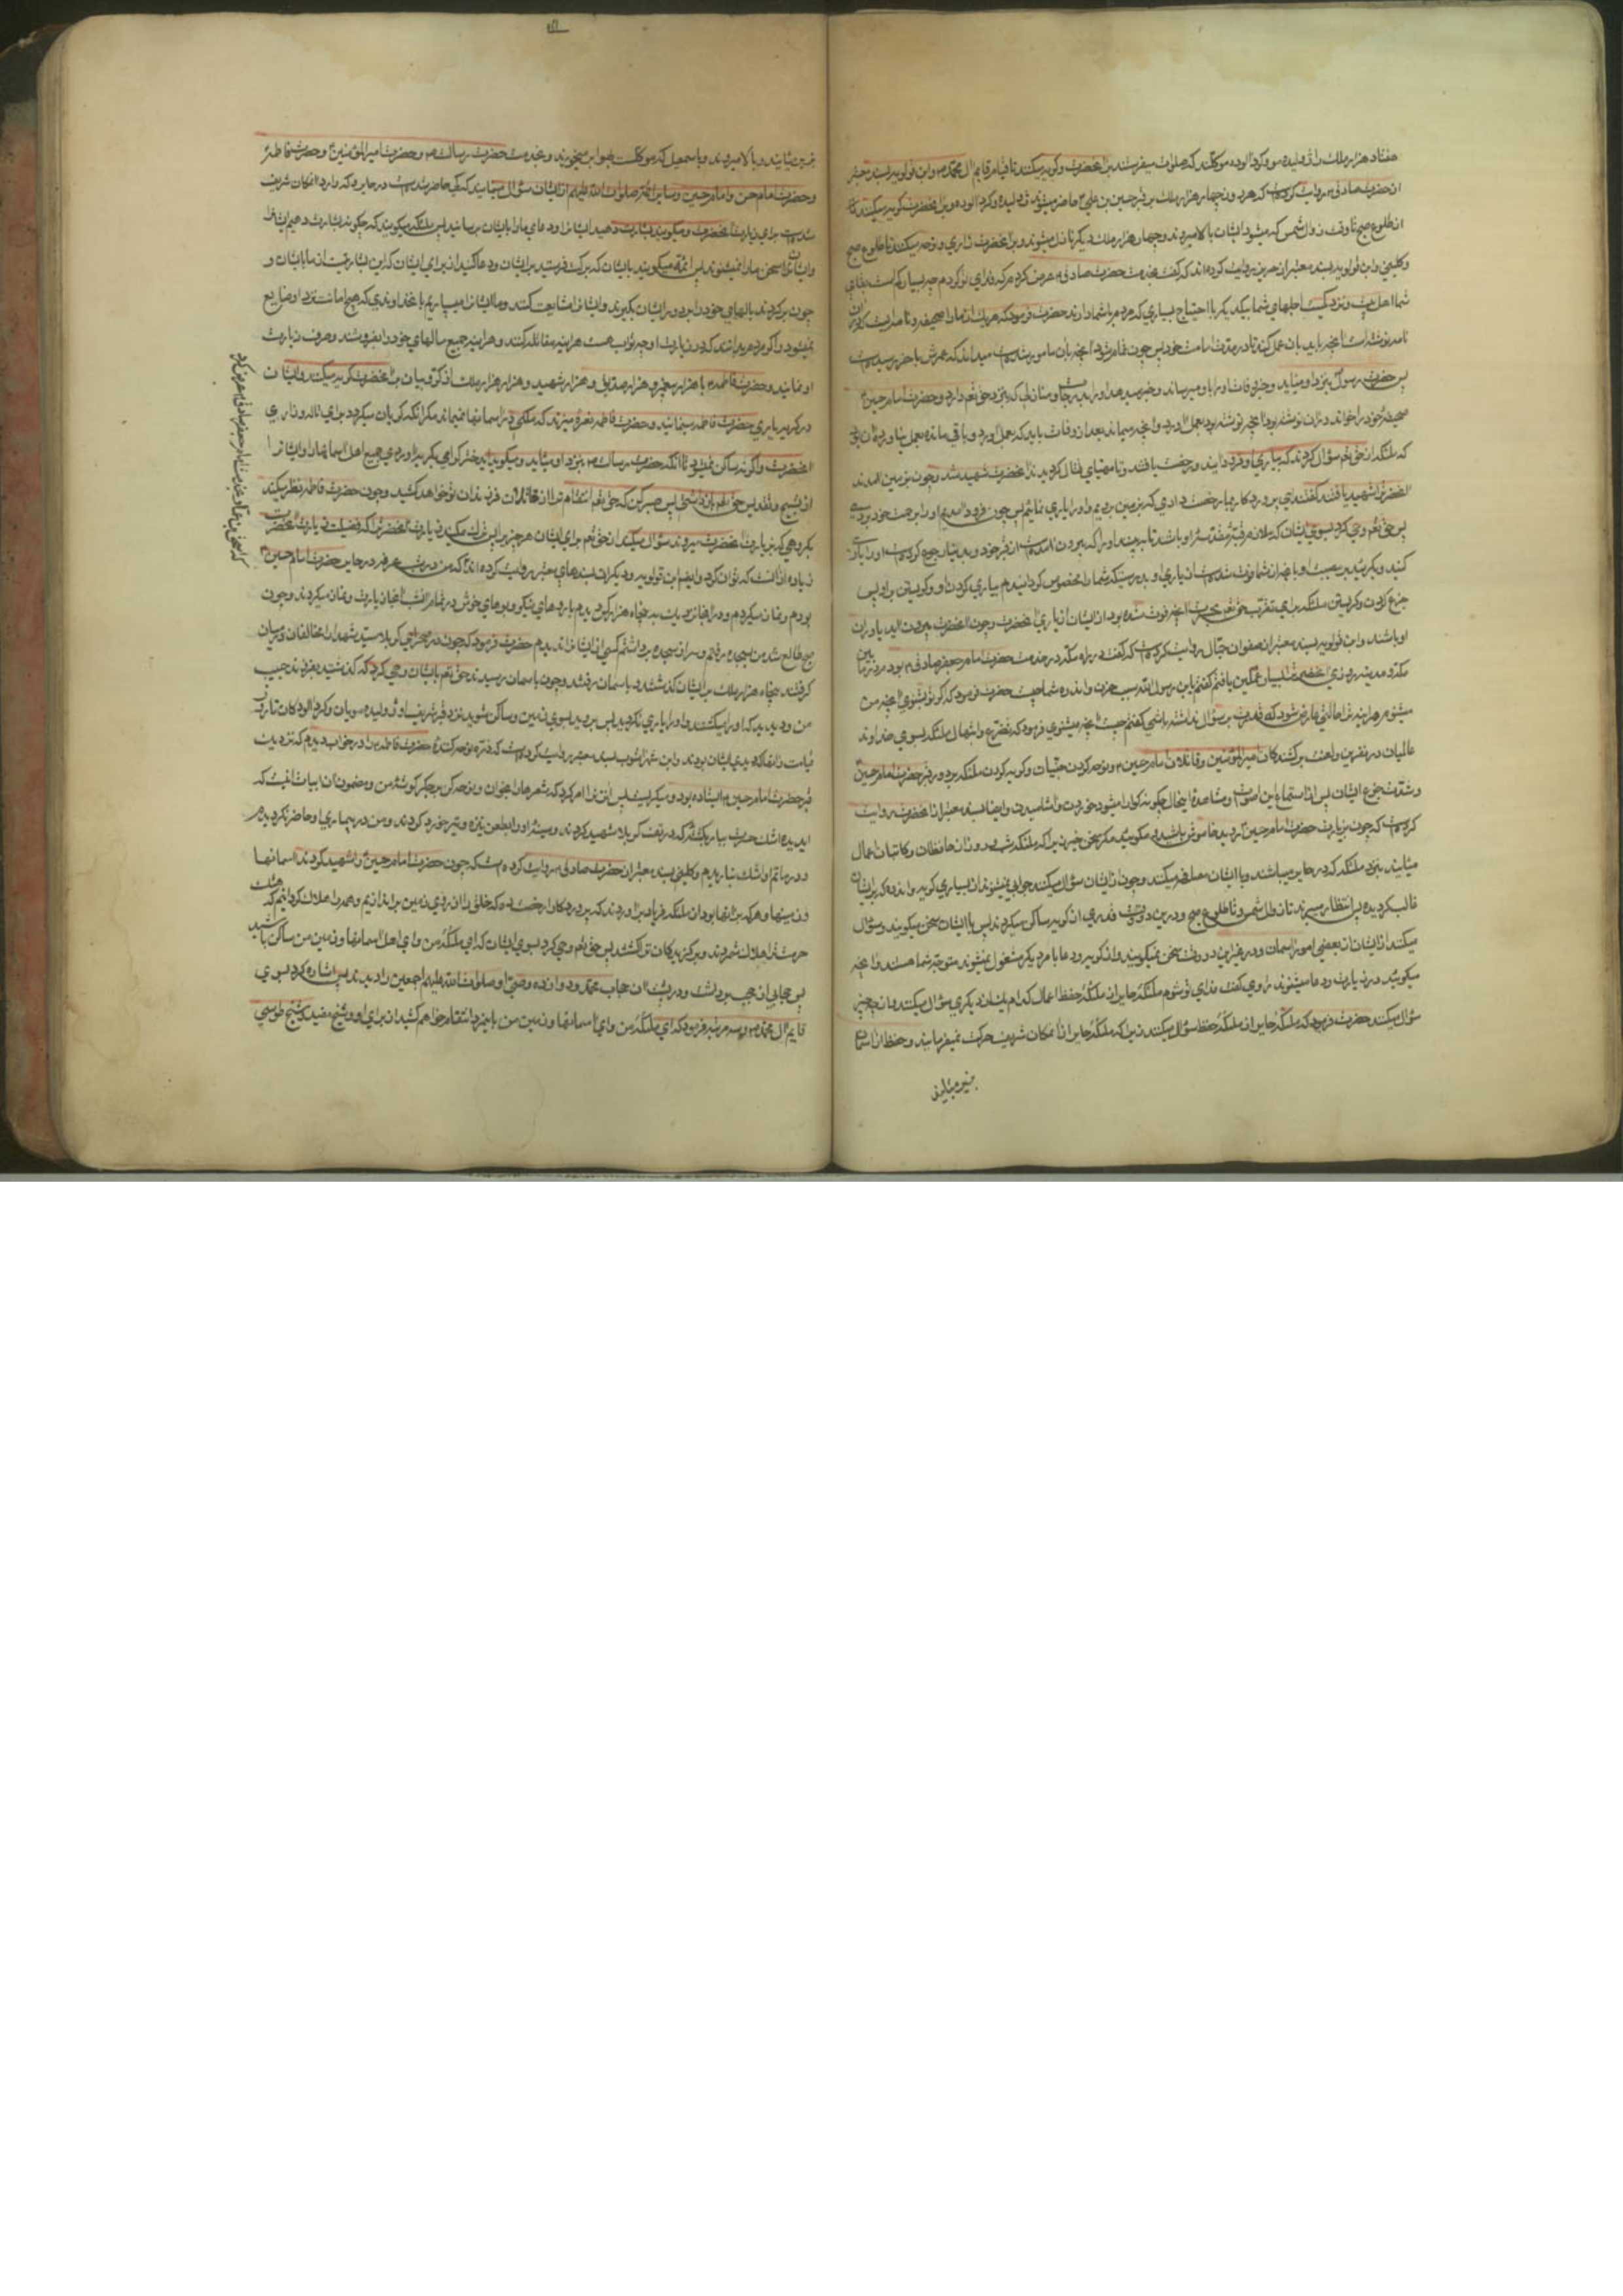 هفتاد هزار ملک را ژولیده مو و گردآلوده موکلند که صلوات میفرستند بر آنحضرت و گریه میکنند تا قیام قایم آل محمد و ابن قولویه بسند معتبر
از حضرت صادق روایت کرده است که هر روز چهار هزار ملک بر قبر حسین بن علی حاضر میشوند ژولیده و گردآلوده و بر آنحضرت گریه میکنند
از طلوع صبح تا وقت زوال شمس که میشود ایشان بالا میروند و چهار هزار ملک دیگر نازل میشوند و بر آنحضرت زاری و نوحه میکنند تا طلوع صبح
و کلینی و ابن قولویه بسند معتبر از حریز روایت کرده اند که گفت بخدمت حضرت صادق عرض کردم که فدای تو گردم چه بسیار کم است بقای
شما اهل بیت و نزدیک است اجلهای شما بیکدیگر با احتیاج بسیاری که مردم بشما دارند حضرت فرمود که هر یک از ما را صحیفه و نامه ایست که در آن
نامه نوشته است آنچه باید بآن عمل کند تا در مدت امامت خود پس چون تمام شود آنچه بآن مامور شده است میداند که عمرش بآخر رسیده است
پس حضرت رسول بنزد او میآید و خبر وفات او را باو میرساند و خبر میدهد او را بدرجات و منازلی که نزد حق تعالی دارد و حضرت امام حسین
صحیفه خود را خواند در آن نوشته بود آنچه نوشته بود بعمل آورد و آنچه میماند بعد از وفات باید که بعمل آورد و باقی مانده بعمل نیاورده آن بود
که ملئکه از حق تعالی سؤال کردند که بیاری او فرود آیند و رخصت یافتند و تا مهیای قتال گردیدند آنحضرت شهید شد و چون بزمین آمدند
آنحضرت را شهید یافتند گفتند ای پروردگار ما رخصت دادی که بزمین رویم و او را یاری نمائیم پس چون فرود آمدیم او را برحمت خود بردی
پس حق تعالی وحی کرد بسوی ایشان که ملازم قبه مقدسه او باشید تا ببینید او را که بیرون آمده است از قبر خود
کنید و بگریید بر مصیبت او و بآنچه از شما فوت شده است از یاری او بدرستیکه شما را مخصوص گردانیدم بیاری کردن او و گریستن بر او پس
جزع کردن و گریستن ملئکه برای تقرب بحق تعالی آنچه فوت شده بود از ایشان از یاری آنحضرت و چون آنحضرت بیرون آید یاوران
او باشند و ابن قولویه بسند معتبر از صفوان جمال روایت کرده است که گفت در راه مکه در خدمت حضرت امام جعفر صادق بودم در مابین
مکه و مدینه روزی آنحضرت را بسیار غمگین یافتم گفتم یابن رسول الله سبب حزن و اندوه شما چیست حضرت فرمود که گر تو بشنوی آنچه من
میشنوم هر آینه ترا حالتی عارض شود که قدرت بر سؤال نداشته باشی گفتم چیست آنچه میشنوی فرمود که تضرع و ابتهال ملئکه بسوی خداوند
عالمیان در نفرین و لعنت بر کشندگان امیرالمؤمنین و قاتلان امام حسین و نوحه کردن جنیان و گریه کردن ملئکه بر دور قبر حضرت امام حسین
و شدت جزع ایشان پس از استماع این اصوات و مشاهده این حال چگونه گوارا میشود خوردن و آشامیدن و ایضا بسند معتبر از آنحضرت روایت
کرده است که چون بزیارت حضرت امام حسین گردید خاموش باشید و مگویید مگر سخن خیر زیرا که ملئکه شب و روز از حافظان و کاتبان اعمال
میآیند بنزد ملئکه که در حایر میباشند و با ایشان مصافحه میکنند و چون از ایشان سؤال میکنند جوابی نمیشنوند از بسیاری گریه و اندوه که بر ایشان
غالب گردیده پس انتظار میبرند تا زوال شمس و تا طلوع صبح و در این دو وقت قدری از گریه ساکن میگردند پس با ایشان سخن میگویند و سؤال
میکنند از ایشان از بعضی امور آسمان و در غیر این دو وقت سخن نمیگویند و از گریه و دعا بامر دیگر مشغول نمیشوند متوجه شما هستند و آنچه
میگویید در زیارت و دعا میشنوند راوی گفت فدای تو شوم ملئکه حایر از ملئکه حفظ اعمال کدام یک از دیگری سؤال میکنند و از چه چیز
سؤال میکنند حضرت فرمود که ملئکه حایر از ملئکه حفظ سؤال میکنند زیرا که ملئکه حایر از آن مکان شریف حرکت نمیفرمایند و حفظه از آسمان
بزمین میآیند
بزمین میآیند و بالا میروند و با سمعیل که موکلست بهوا بر میخورند و بخدمت حضرت رسالت و حضرت امیرالمؤمنین و حضرت فاطمه
و حضرت امام حسن و امام حسین و سایر ائمه صلوات الله علیهم از ایشان سؤال مینمایند که کی حاضر شده است در حایر و که وارد آن مکان شریف
شده است برای زیارت آنحضرت و میگویند بشارت دهید ایشان را و دعای ما را بایشان برسانید پس ملئکه میگویند که چگونه بشارت دهیم ایشان را
و ایشان سخن ما را نمیشنوند پس ائمه میگویند بایشان که برکت فرستید بر ایشان و دعا کنید از برای ایشان که این بشارتست از ما بایشان و
چون برگردند بالهای خود را بر دور ایشان بگیرند و ایشان را مشایعت کنند و ما ایشان را میسپاریم بخداوندی که هیچ امانت نزد او ضایع
نمیشود و اگر مردم بدانند که در زیارت او چه ثواب هست هر آینه مقاتله کنند و هر آینه جمیع مالهای خود را بفروشند و صرف زیارت
او نمایند و حضرت فاطمه با هزار پیغمبر و هزار صدیق و هزار شهید و هزار هزار ملک از کروبیان بر آنحضرت گریه میکنند و ایشان
در گریه یاری حضرت فاطمه مینمایند و حضرت فاطمه نعره میزند که ملکی در آسمانها نمیماند مگر آنکه گریان میگردد برای ناله و زاری
آنحضرت و آن گریه ساکن نمیشود تا آنکه حضرت رسالت بنزد او میآید و میگوید ای دختر گرامی بگریه در آوردی جمیع اهل آسمانها را و ایشان را
از تسبیح و تقدیس حق تعالی باز داشتی پس صبر کن که حق تعالی انتقام ترا از قاتلان فرزندان تو خواهد کشید و چون حضرت فاطمه نظر میکند
بگروهی که بزیارت آنحضرت میروند سؤال میکند از حق تعالی برای ایشان هر چیز پس ترک مکنید زیارت آنحضرت را که فضیلت زیارت آنحضرت
زیاده از آنست که توان کرد و ایضا ابن قولویه و دیگران بسندهای معتبر روایت کرده اند که من در شب عرفه در حایر حضرت امام حسین
بودم و نماز میکردم و در آنجا نزدیک به پنجاه هزار کس دیدم با روهای نیکو و بوهای خوش در تمام آن شب آنجا زیارت و نماز میکردند و چون
صبح طالع شد من بسجده رفتم و سر از سجده برداشتم کسی از ایشان را ندیدم حضرت فرمود که چون در صحرای کربلا سید شهدا را مخالفان در میان
گرفتند پنجاه هزار ملک بر ایشان گذشتند و بآسمان رفتند و چون بآسمان رسیدند حق تعالی بایشان وحی کرد که گذشتید بفرزند حبیب
من و دیدید که او را میکشند و او را یاری نکردید پس بروید بسوی زمین و ساکن شوید نزد قبر شریف او ژولیده مویان و گردآلودگان تا روز
قیامت و ابن شهر آشوب بسند معتبر روایت کرده است که ذره نوحه کننده حضرت فاطمه را در خواب دیدم که نزدیک
قبر حضرت امام حسین ایستاده بود و میگریست پس آن زن را امر کرد که شعرها را بخوان و نوحه کن بر جگر گوشه من و مضمون آن ابیات اینست که
ای دیده اشک حسرت ببار بر کشته که در تفت کربلا شهید کردند و سینه او را بطعن نیزه و تیر خورد کردند و من در بیماری او حاضر نگردیدم
و در ماتم او اشک نباریدم و کلینی بسند معتبر از حضرت صادق روایت کرده است که چون حضرت امام حسین را شهید کردند آسمانها
و زمینها و هر که بر آنها بود از ملئکه فریاد برآوردند که پروردگارا رخصت ده که خلق را از روی زمین براندازیم و همه را هلاک گردانیم که هتک
حرمت ترا حلال شمردند و برگزیدگان ترا کشتند پس حق تعالی وحی کرد بسوی ایشان که ای ملئکه من و ای اهل آسمانها و زمین من ساکن باشید
پس حجابی از حجب برداشت و در پشت آن حجاب محمد و دوازده وصی او صلوات الله علیهم اجمعین را دیدند پس اشاره کرد بسوی
قایم آل محمد و سه مرتبه فرمود که ای ملئکه من و ای آسمانها و زمین من باین مرد انتقام خواهم کشید از برای او و شیخ مفید و شیخ طوسی